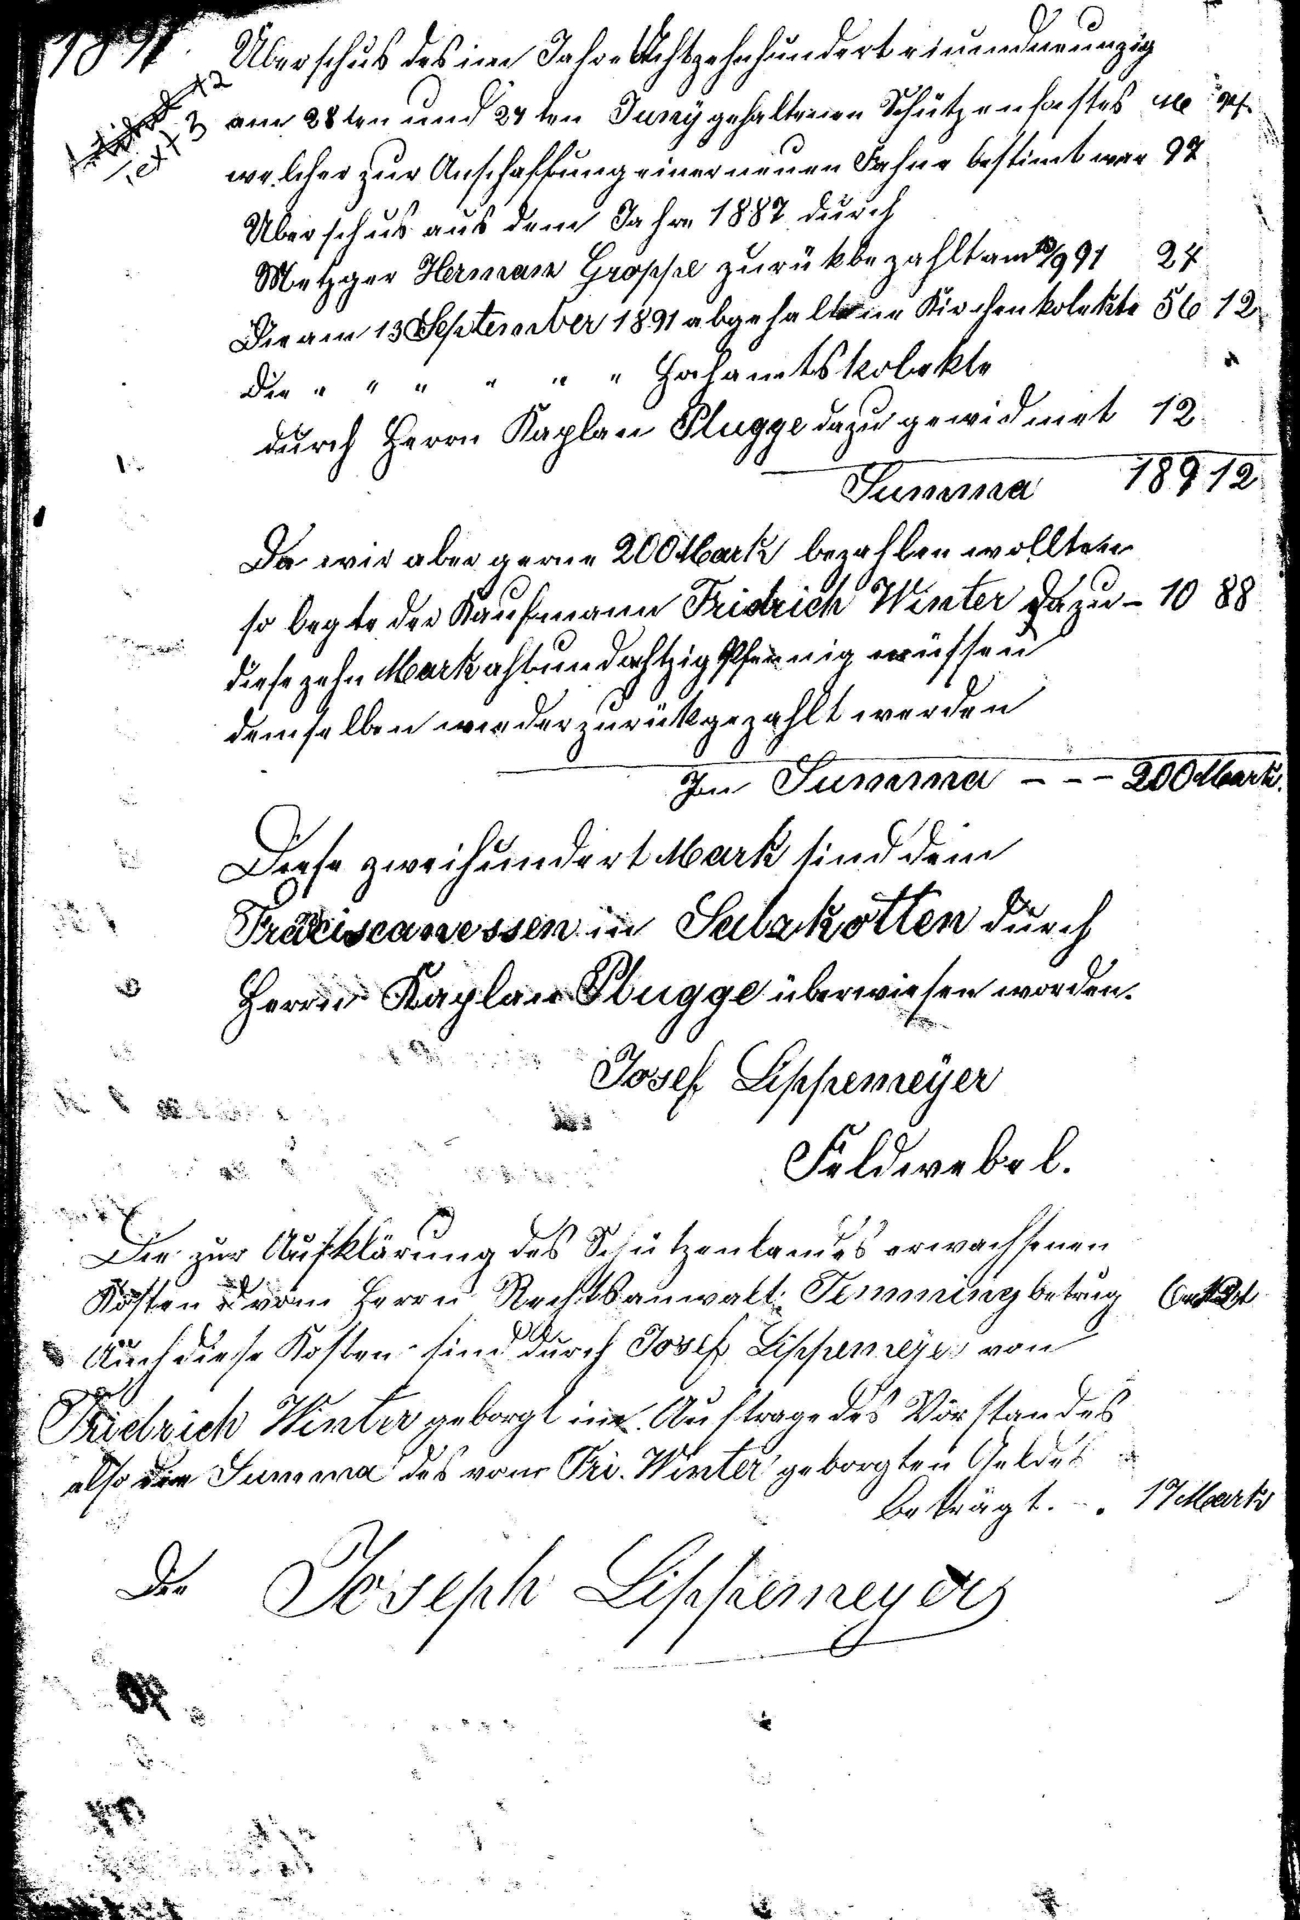 1891.
Text 3
Überschus des im Jahre Achtzehnhundert einundneunzig
am 28ten und 29ten Juny gehaltenen Schützenfestes M Pf.
welcher zur Anschaffung einer neuen Fahne bestimt war 97
Uberschus aus dem Jahre 1887 durch
Metzger Herman Groppe zurükbezahlt am 13/9 91 24
Die am 13 September 1891 abgehaltene Kirchenkolekte 56 12
Die " " " " " " Hochamtskolekte
durch Herrn Kaplan Plugge dazu gewidmet 12
Summa 189 12
Da wir aber gerne 200 Mark bezahlen wollten
so legte der Kaufmann Fridrich Winter dazu – 10 88
diese zehn Mark ahtundachtzig Pfennig müssen
demselben wieder zurükgezahlt werden
In Summa – – – 200 Mark.
Diese zweihundert Mark sind dem
Franciscanessen in Salzkotten durch
Herrn Kaplan Plugge überwiesen worden.
Josef Lippemeÿer
Feldwebel.
Die zur Aufklärung des Schützenlandes erwachsenen
Kosten vom Herrn Rechtsanwalt Temming betrug
Auch diese Kosten sind durch Josef Lippemeÿer von
Fridrich Winter geborgt im Auftrage des Vorstandes
also die Summa des vom Fri. Winter geborgten Geldes
beträgt. – . 17 Mark
Der Joseph Lippemeyer